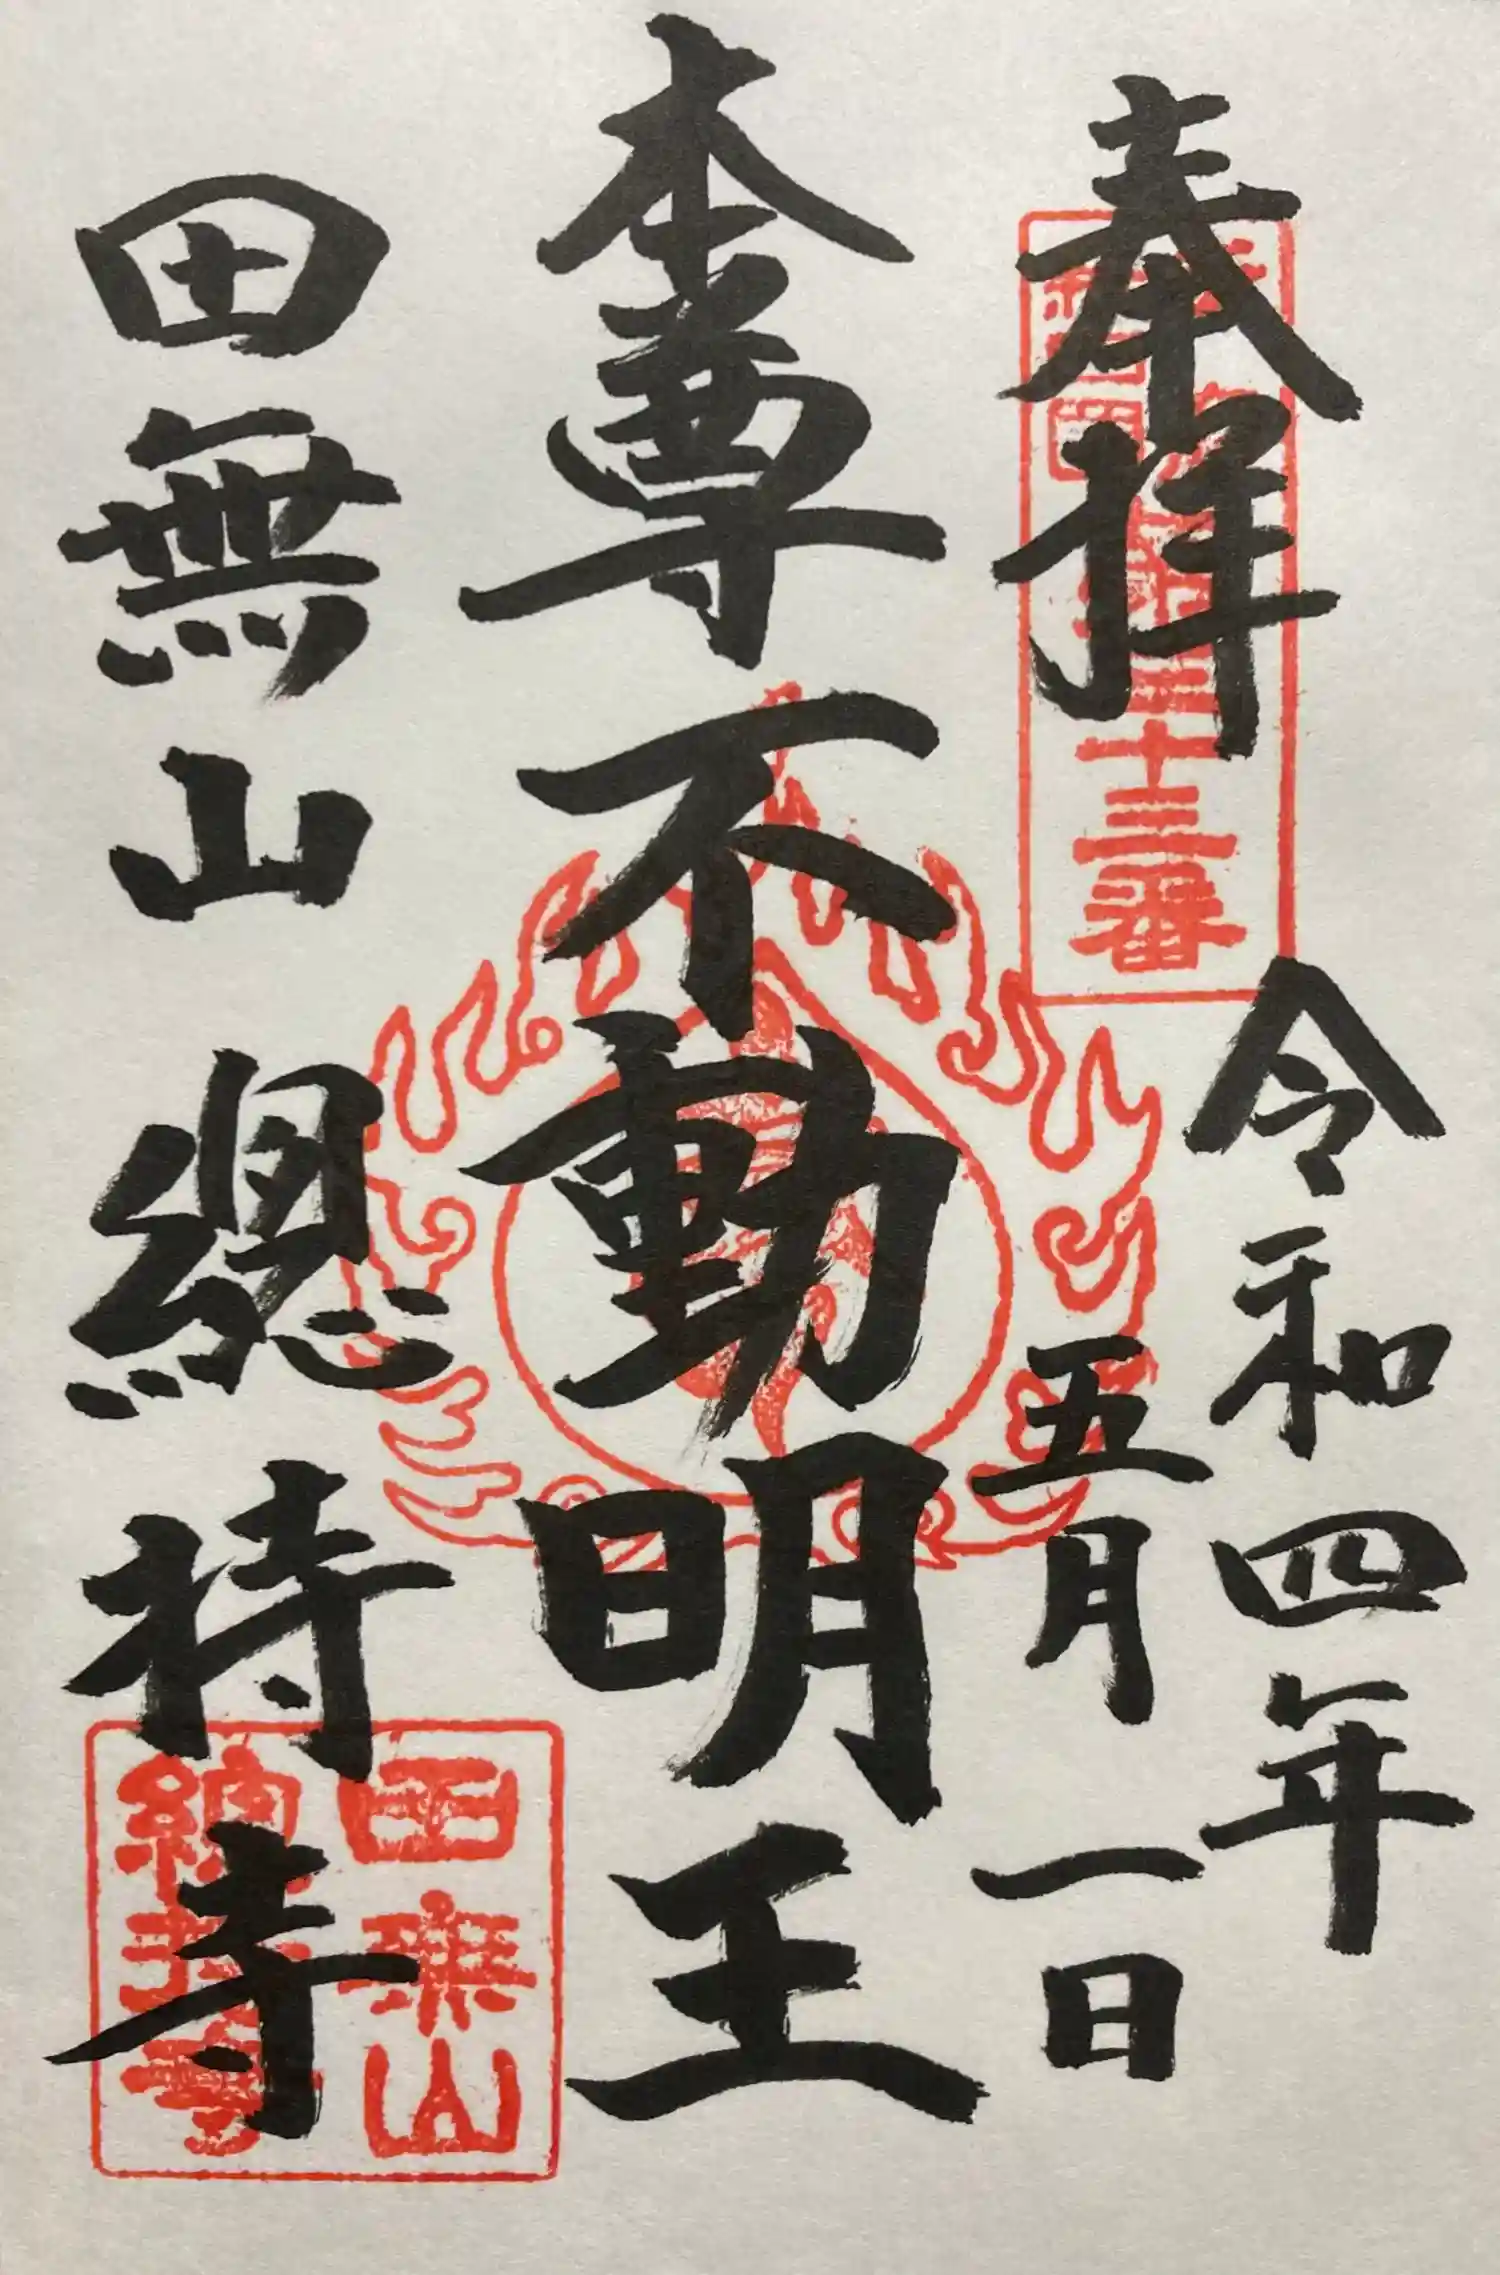 奉拝
令和四年
五月一日
本尊不動明王
田無山
總持寺
三十三番
田無山
總持寺